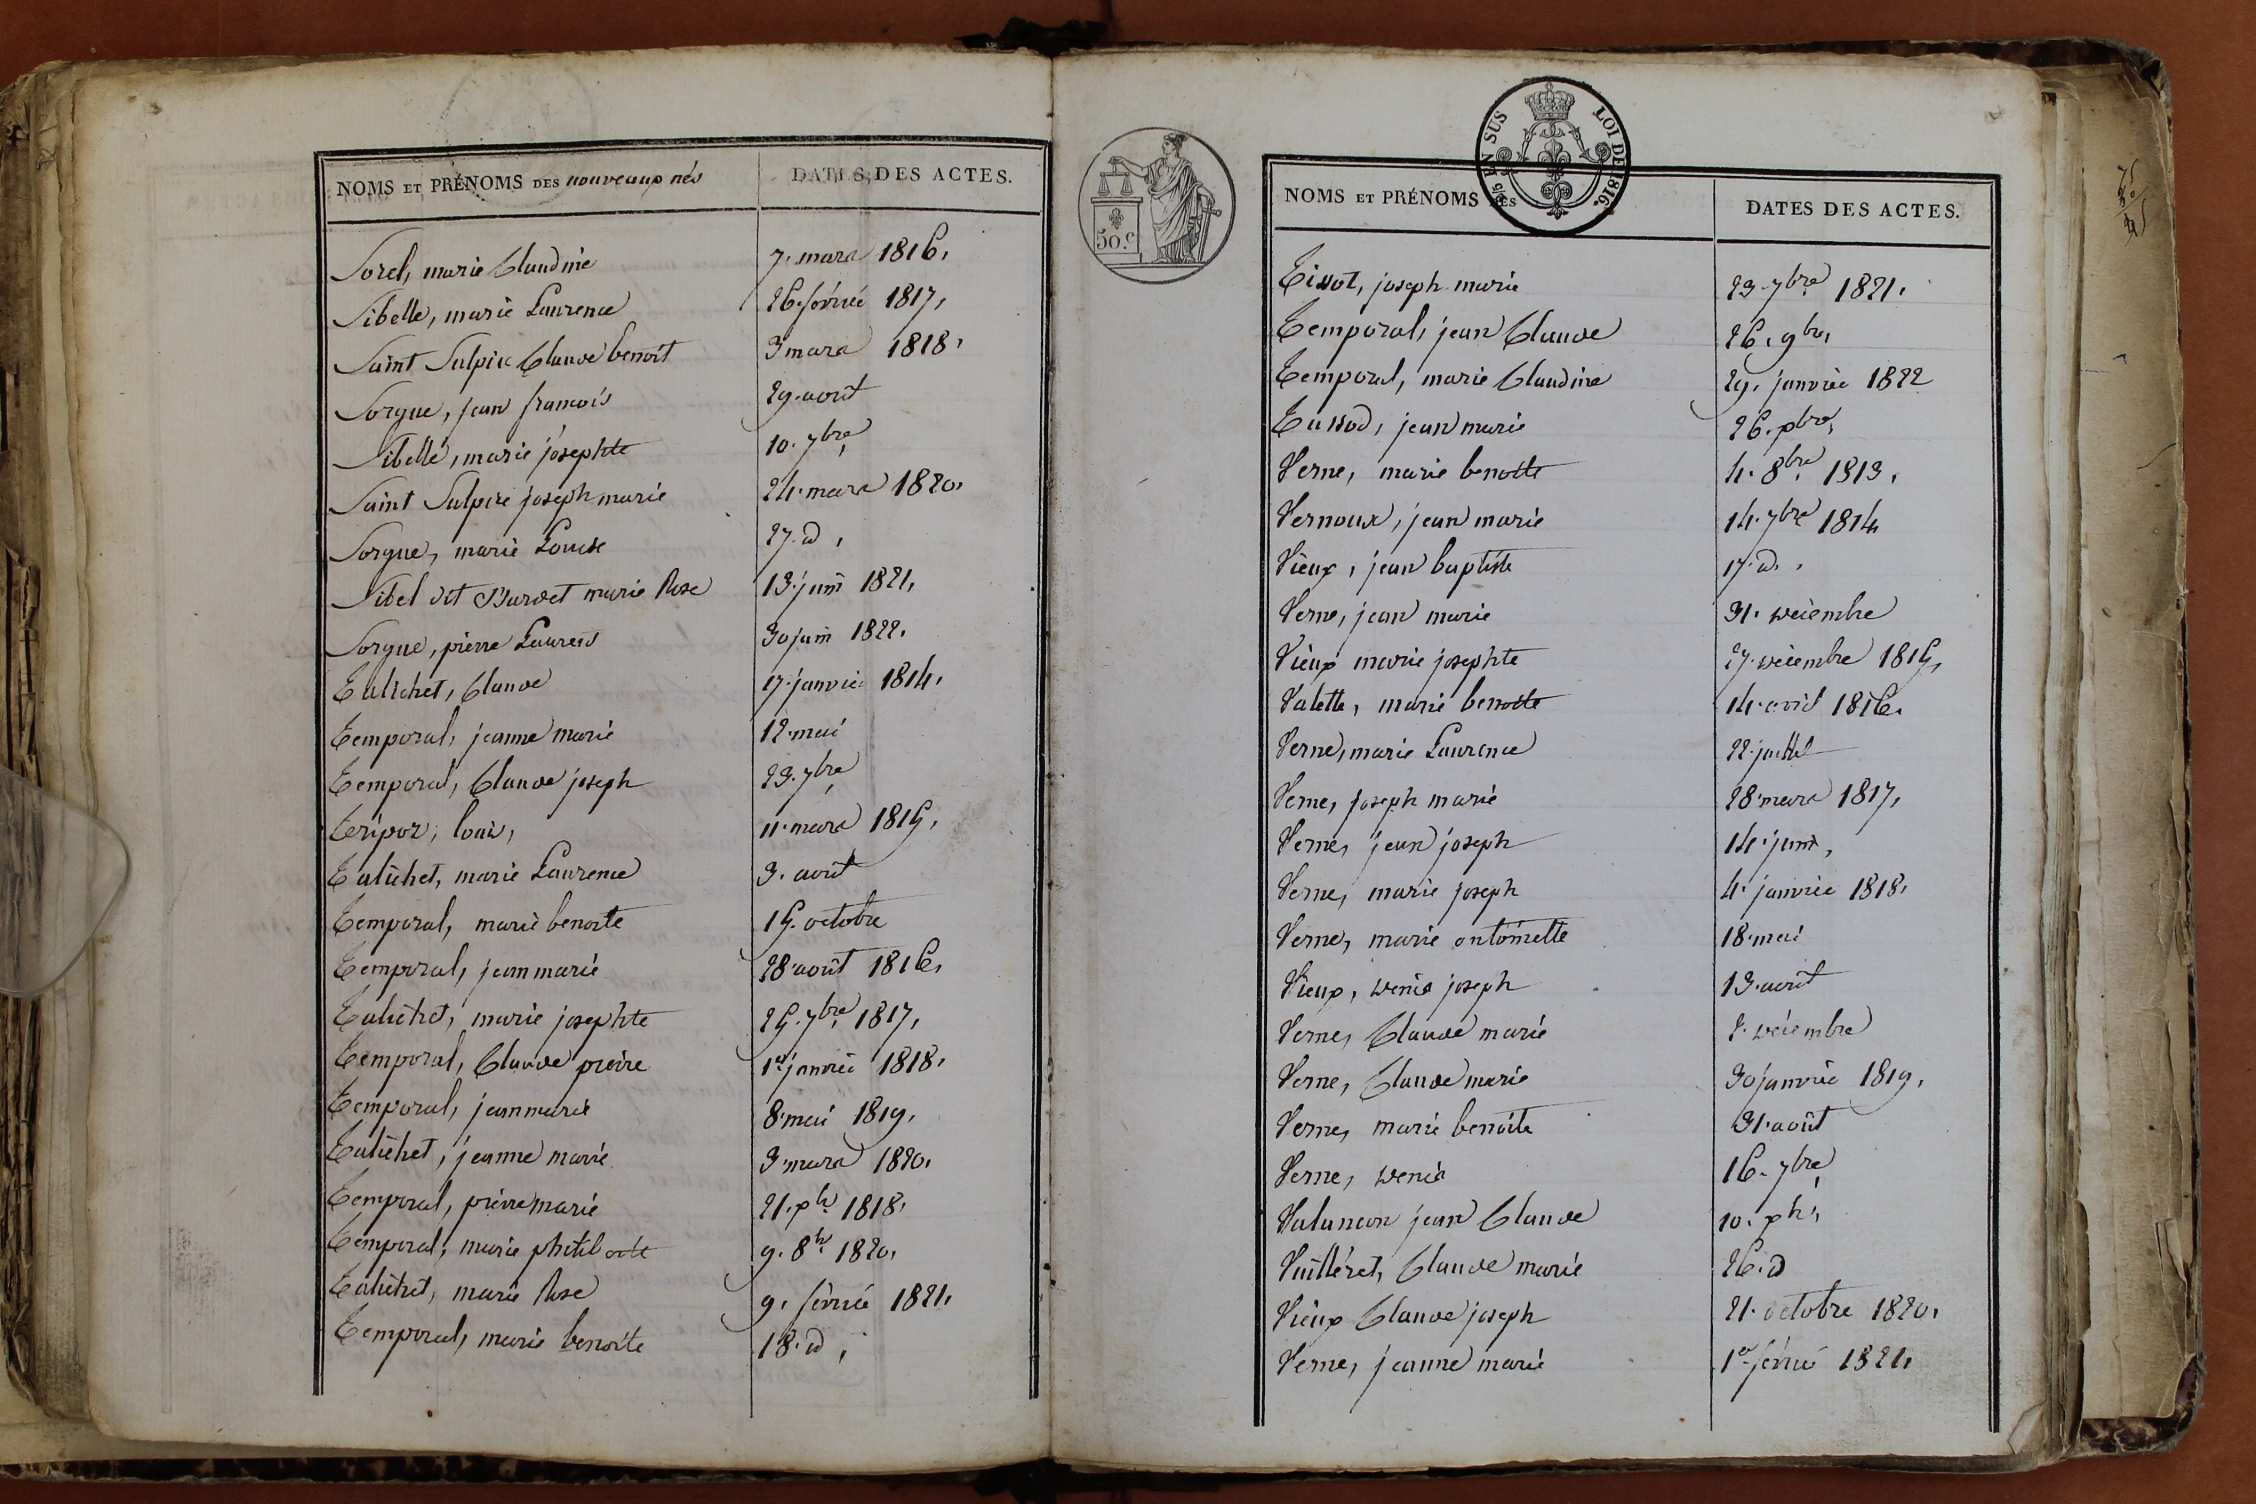 NOMS ET PRÉNOMS DES nouveaux nés DATES DES ACTES.
Sorel, marie Claudine 7. mars 1816,
Sibelle, marie Laurence 26. février 1817,
Saint Sulpice Claude benoit 3 mars 1818,
Sorgue, jean francois 29. août
Sibelle, marie josephte 10. 7bre,
Saint Sulpice joseph marie 24. mars 1820,
Sorgue, marie Louise 27. d,
Sibel dit Burdet marie Rose 13. juin 1821,
Sorgue, pierre Laurens 30 juin 1822,
Talichet, Claude 17. janvier 1814,
Temporal, jeanne marie 12. mai
Temporal, Claude joseph 23. 7bre,
louis, 11. mars 1815,
Talichet, marie Laurence 3. août
Temporal, marie benoite 15. octobre
Temporal, jean marie 28. août 1816,
Talichet, marie josephte 25. 7bre 1817,
Temporal, Claude pierre 1er janvier 1818,
Temporal, jean marie 8. mai 1819,
Talichet, jeanne marie 3. mars 1820,
Temporal, pierre marie 21. 1818,
Temporal, marie philiberte 9. 8br 1820,
Talichet, marie Rose 9. février 1821,
Temporal, marie benoite 18. d,
50. C
EN SUS LOI DE 1816.
NOMS ET PRÉNOMS DES DATES DES ACTES.
Tissot, joseph marie 23. 7bre 1821,
Temporal, jean Claude 26. 9bre,
Temporal, marie Claudine 29. janvier 1822
jean marie 26. xbre,
Verne, marie benoite 4. 8bre 1813,
Vernoux, jean marie 14. 7bre 1814
Vieux, jean baptiste 17. d.,
Verne, jean marie 31. décembre
Vieux marie josephte 27. décembre 1815,
Valette, marie benoite 14. avril 1816,
Verne, marie Laurence 22. juillet
Verne, joseph marie 28. mars 1817,
Verne, jean joseph 14. juin,
Verne, marie joseph 4. janvier 1818,
Verne, marie antoinette 18. mai
Vieux, denis joseph 13. août
Verne, Claude marie décembre
Verne, Claude marie 30 janvier 1819,
Verne, marie benoite 31. août
Verne, denis 16. 7bre,
Valancon jean Claude 10.
Vuilléret, Claude marie 26. d
Vieux Claude joseph 21. octobre 1820,
Verne, jeanne marie 1er février 1821,